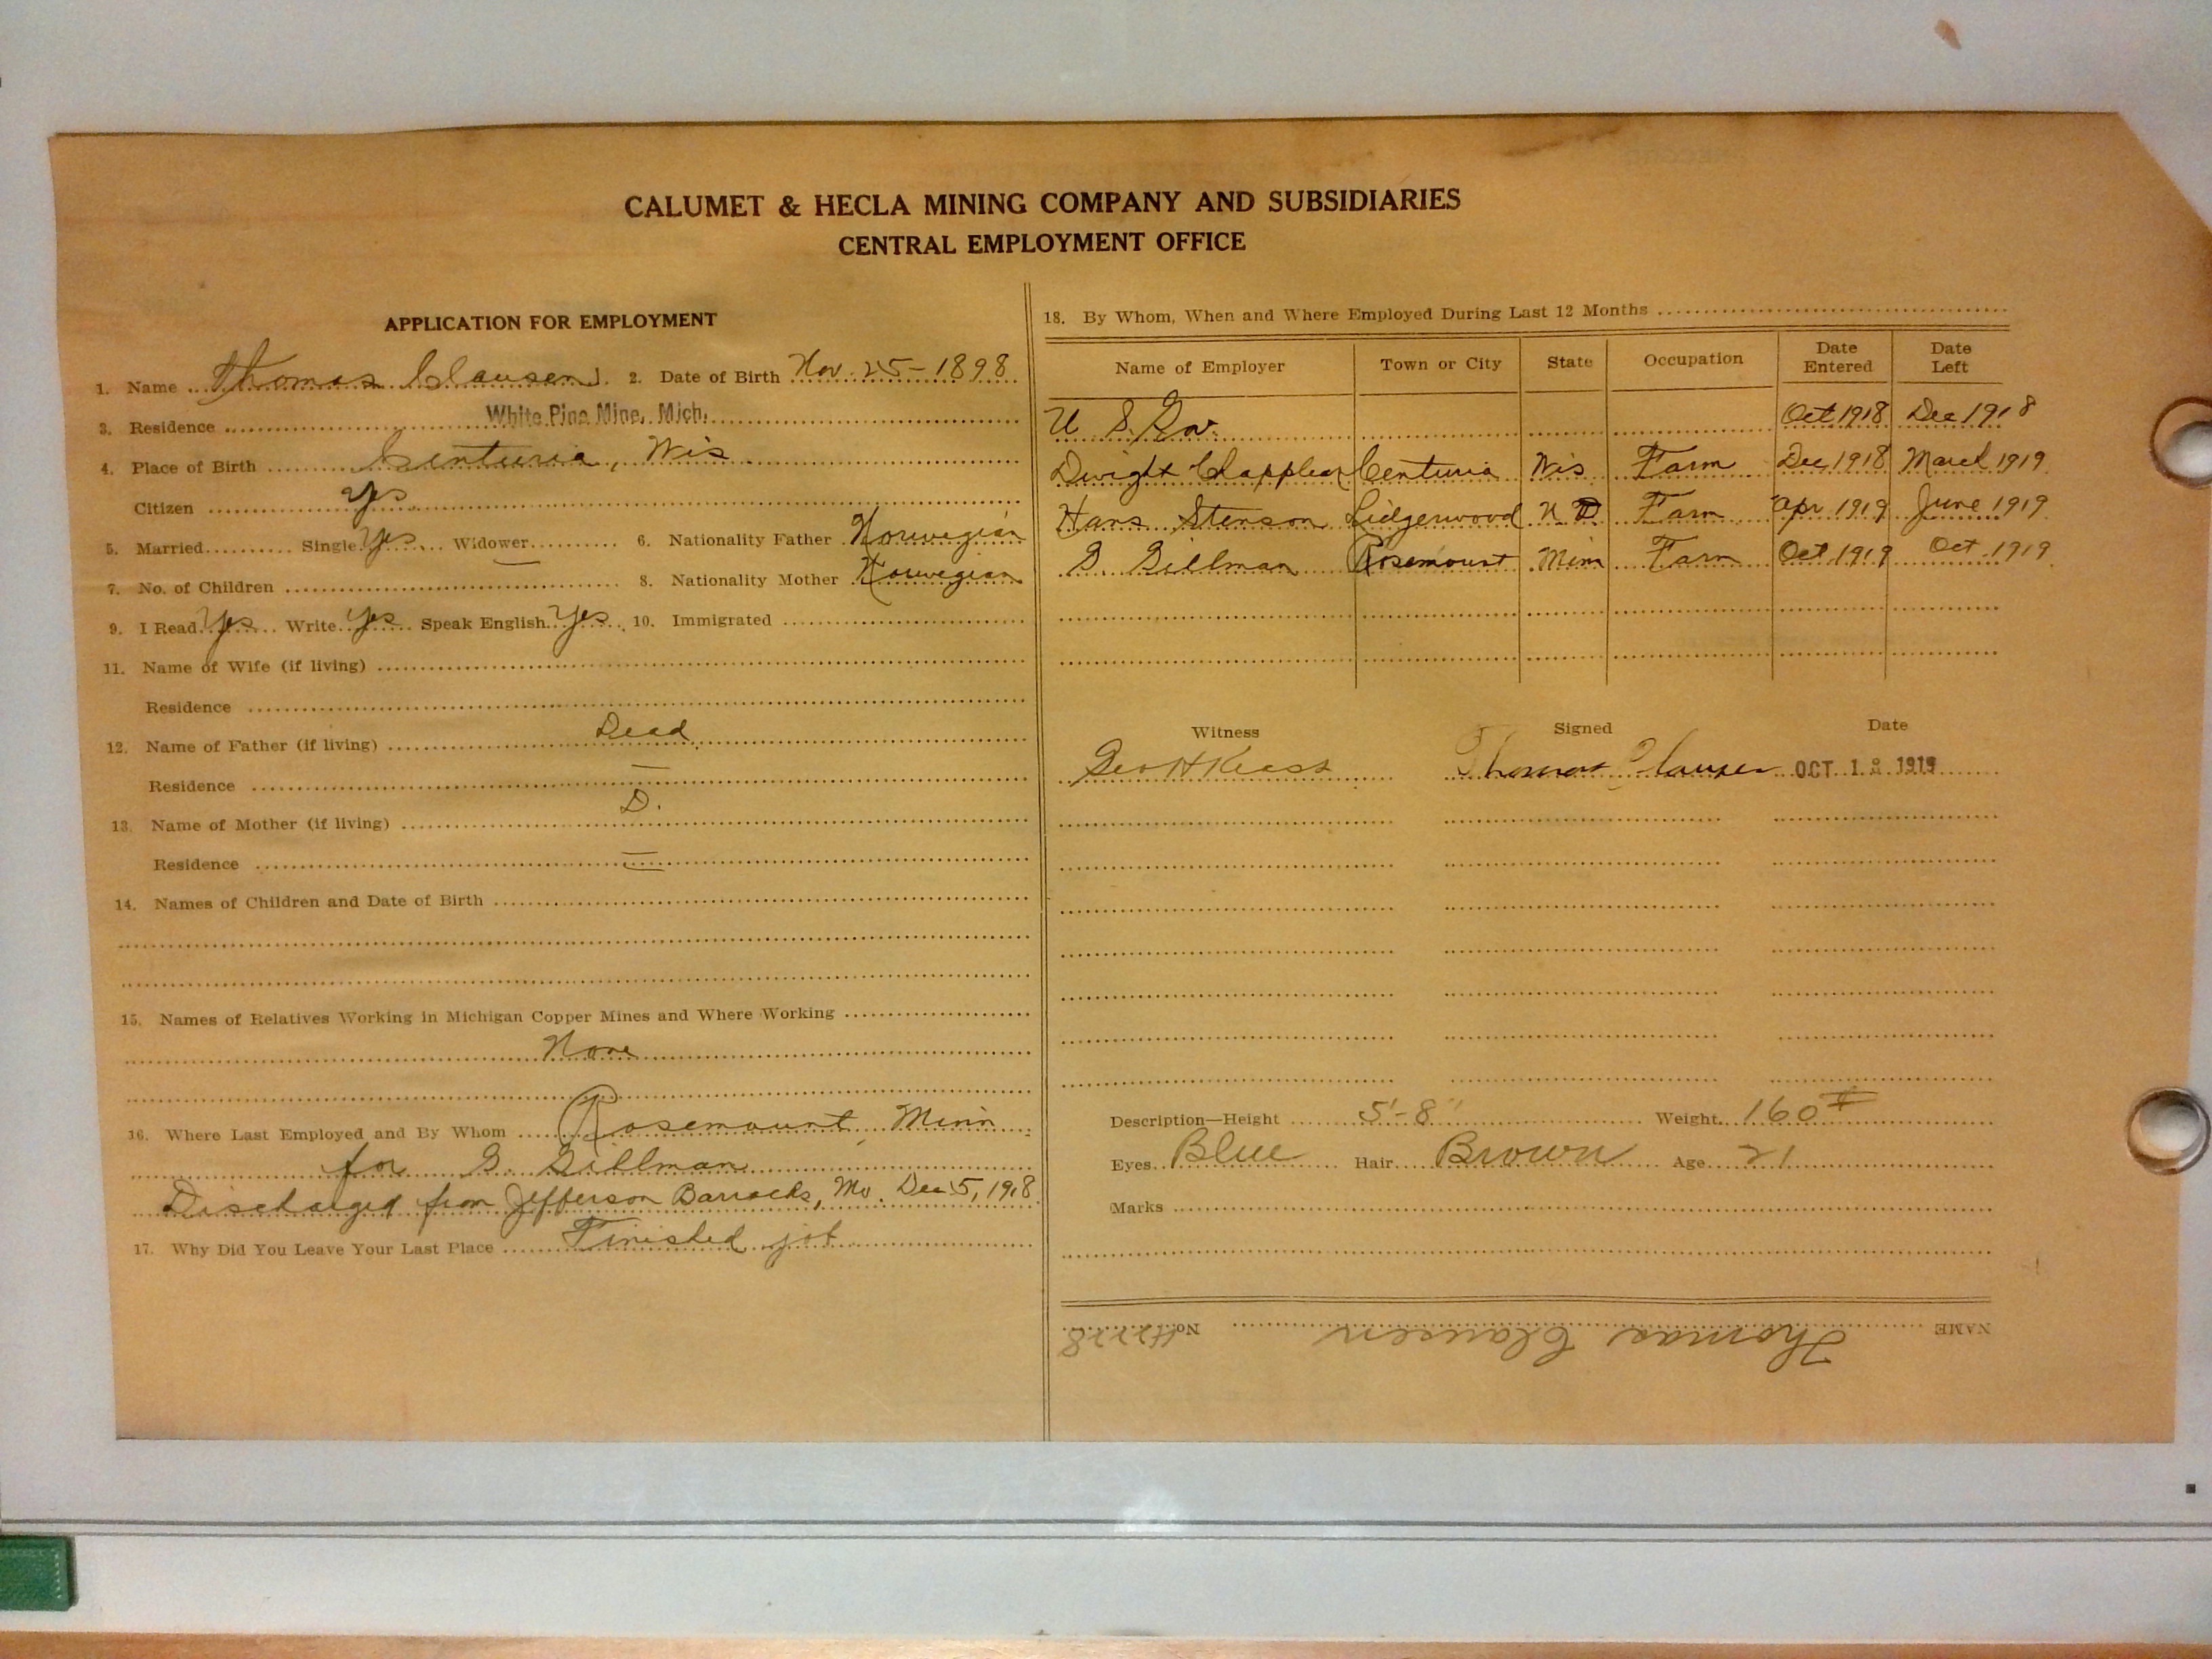 CALUMET & HECLA MINING COMPANY AND SUBSIDIARIES
CENTRAL EMPLOYMENT OFFICE
APPLICATION FOR EMPLOYMENT
1. Name Thomas Clausen 2. Date of Birth Nov. 25-1898
3. Residence White Pine Mine, Mich.
4. Place of Birth Centuria, Wis
Citizen Yes
5. Married Single Yes Widower 6. Nationality Father Norwegian
7. No. of Children 8. Nationality Mother Norwegian
9. I Read Yes Write Yes Speak English Yes 10. Immigrated
11. Name of Wife (if living)
Residence
12. Name of Father (if living) Dead
Residence —
13. Name of Mother (if living) D.
Residence —
14. Names of Children and Date of Birth
15. Names of Relatives Working in Michigan Copper Mines and Where Working
None
16. Where Last Employed and By Whom Rosemount, Minn
for G. Gillman
Discharged from Jefferson Barracks, Mo. Dec 5, 1918
17. Why Did You Leave Your Last Place Finished job
18. By Whom, When and Where Employed During Last 12 Months
Name of Employer Town or City State Occupation Date Entered Date Left
U S. Gov. Oct 1918 Dec 1918
Dwight Centuria Wis Farm Dec 1918 March 1919
Hans Stenson Lidgerwood N D Farm Apr 1919 June 1919
G. Gillman Rosemount Minn Farm Oct 1919 Oct. 1919
Witness Signed Date
Geo H Thomas Clausen OCT 1 1919
Description—Height 5'-8" Weight 160 #
Eyes Blue Hair Brown Age 21
Marks
NAME Thomas Clausen No.